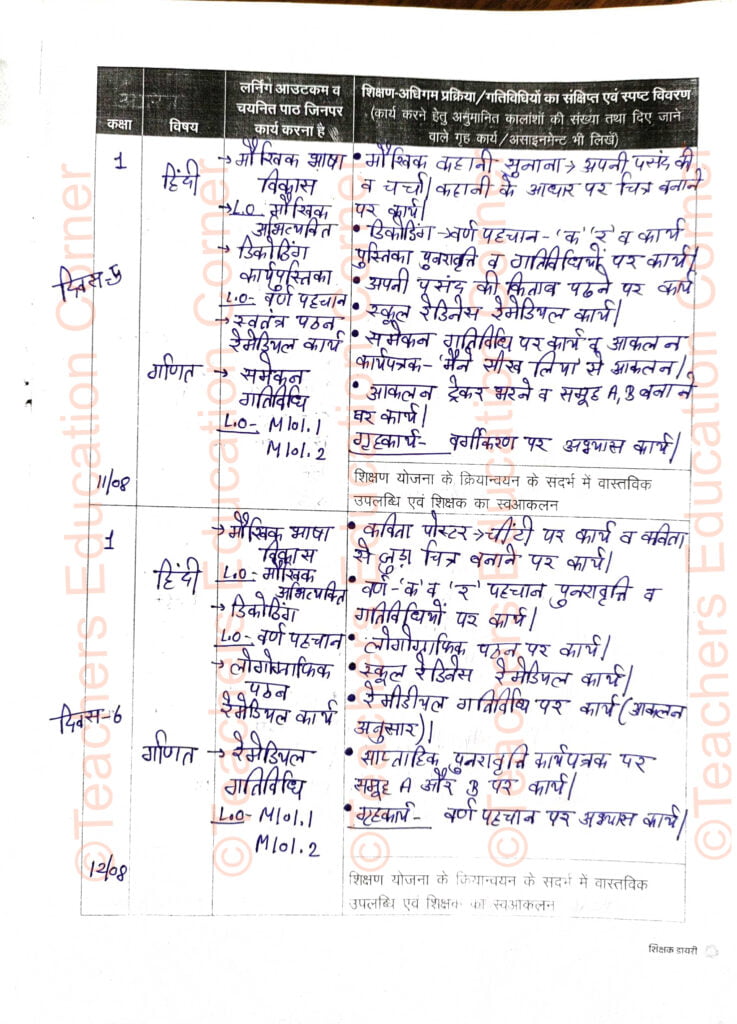 लर्निंग आउटकम व
चयनित पाठ जिनपर
कार्य करना है
शिक्षण-अधिगम प्रक्रिया/गतिविधियों का संक्षिप्त एवं स्पष्ट विवरण
(कार्य करने हेतु अनुमानित कालांशों की संख्या तथा दिए जाने
वाले गृह कार्य/असाइनमेन्ट भी लिखें)
कक्षा
विषय
1
हिंदी
दिवस-5
गणित
11/08
→ मौखिक भाषा
विकास
→ L.O मौखिक
अभिव्यक्ति
→ डिकोडिंग
कार्यपुस्तिका
L.O- वर्ण पहचान
→ स्वतंत्र पठन
रेमेडियल कार्य
→ समेकन
गतिविधि
L.O- M101.1
M101.2
• मौखिक कहानी सुनाना → अपनी पसंद की
व चर्चा। कहानी के आधार पर चित्र बनाने
पर कार्य।
• डिकोडिंग → वर्ण पहचान - 'क' 'र' व कार्य
पुस्तिका पुनरावृत्ति व गतिविधियों पर कार्य।
• अपनी पसंद की किताब पढने पर कार्य
• स्कूल रेडिनेस रेमेडियल कार्य।
• समेकन गतिविधि पर कार्य व आकलन
कार्यपत्रक- 'मैंने सीख लिया' से आकलन।
• आकलन ट्रेकर भरने व समूह A, B बनाने
पर कार्य।
गृहकार्य- वर्गीकरण पर अभ्यास कार्य।
शिक्षण योजना के क्रियान्वयन के सदर्भ में वास्तविक
उपलब्धि एवं शिक्षक का स्वआकलन
1
हिंदी
दिवस-6
गणित
12/08
→ मौखिक भाषा
विकास
L.O- मौखिक
अभिव्यक्ति
→ डिकोडिंग
L.O- वर्ण पहचान
→ लोगोग्राफिक
पठन
रेमेडियल कार्य
→ रेमेडियल
गतिविधि
L.O- M101.1
M101.2
• कविता पोस्टर → चींटी पर कार्य व कविता
से जुड़ा चित्र बनाने पर कार्य।
• वर्ण- 'क' व 'र' पहचान पुनरावृत्ति व
गतिविधियों पर कार्य।
• लोगोग्राफिक पठन पर कार्य।
• स्कूल रेडिनेस रेमेडियल कार्य।
• रेमीडीयल गतिविधि पर कार्य (आकलन
अनुसार)।
• साप्ताहिक पुनरावृत्ति कार्यपत्रक पर
समूह A और B पर कार्य।
• गृहकार्य- वर्ण पहचान पर अभ्यास कार्य।
शिक्षण योजना के क्रियान्वयन के सदर्भ में वास्तविक
उपलब्धि एवं शिक्षक का स्वआकलन
शिक्षक डायरी
©Teachers Education Corner
©Teachers Education Corner
©Teachers Education Corner
©Teachers Education Corner
©Teachers Education Corner